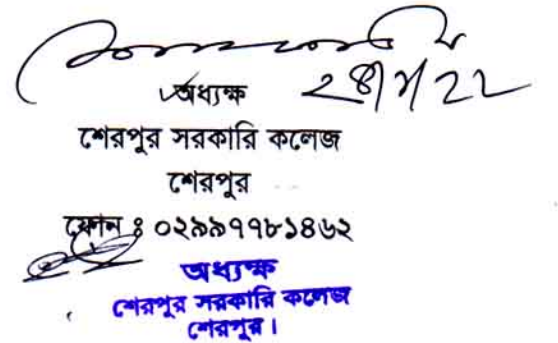 অধ্যক্ষ
শেরপুর সরকারি কলেজ
শেরপুর
ফোন ঃ ০২৯৯৭৭৮১৪৬২
অধ্যক্ষ
শেরপুর সরকারি কলেজ
শেরপুর।